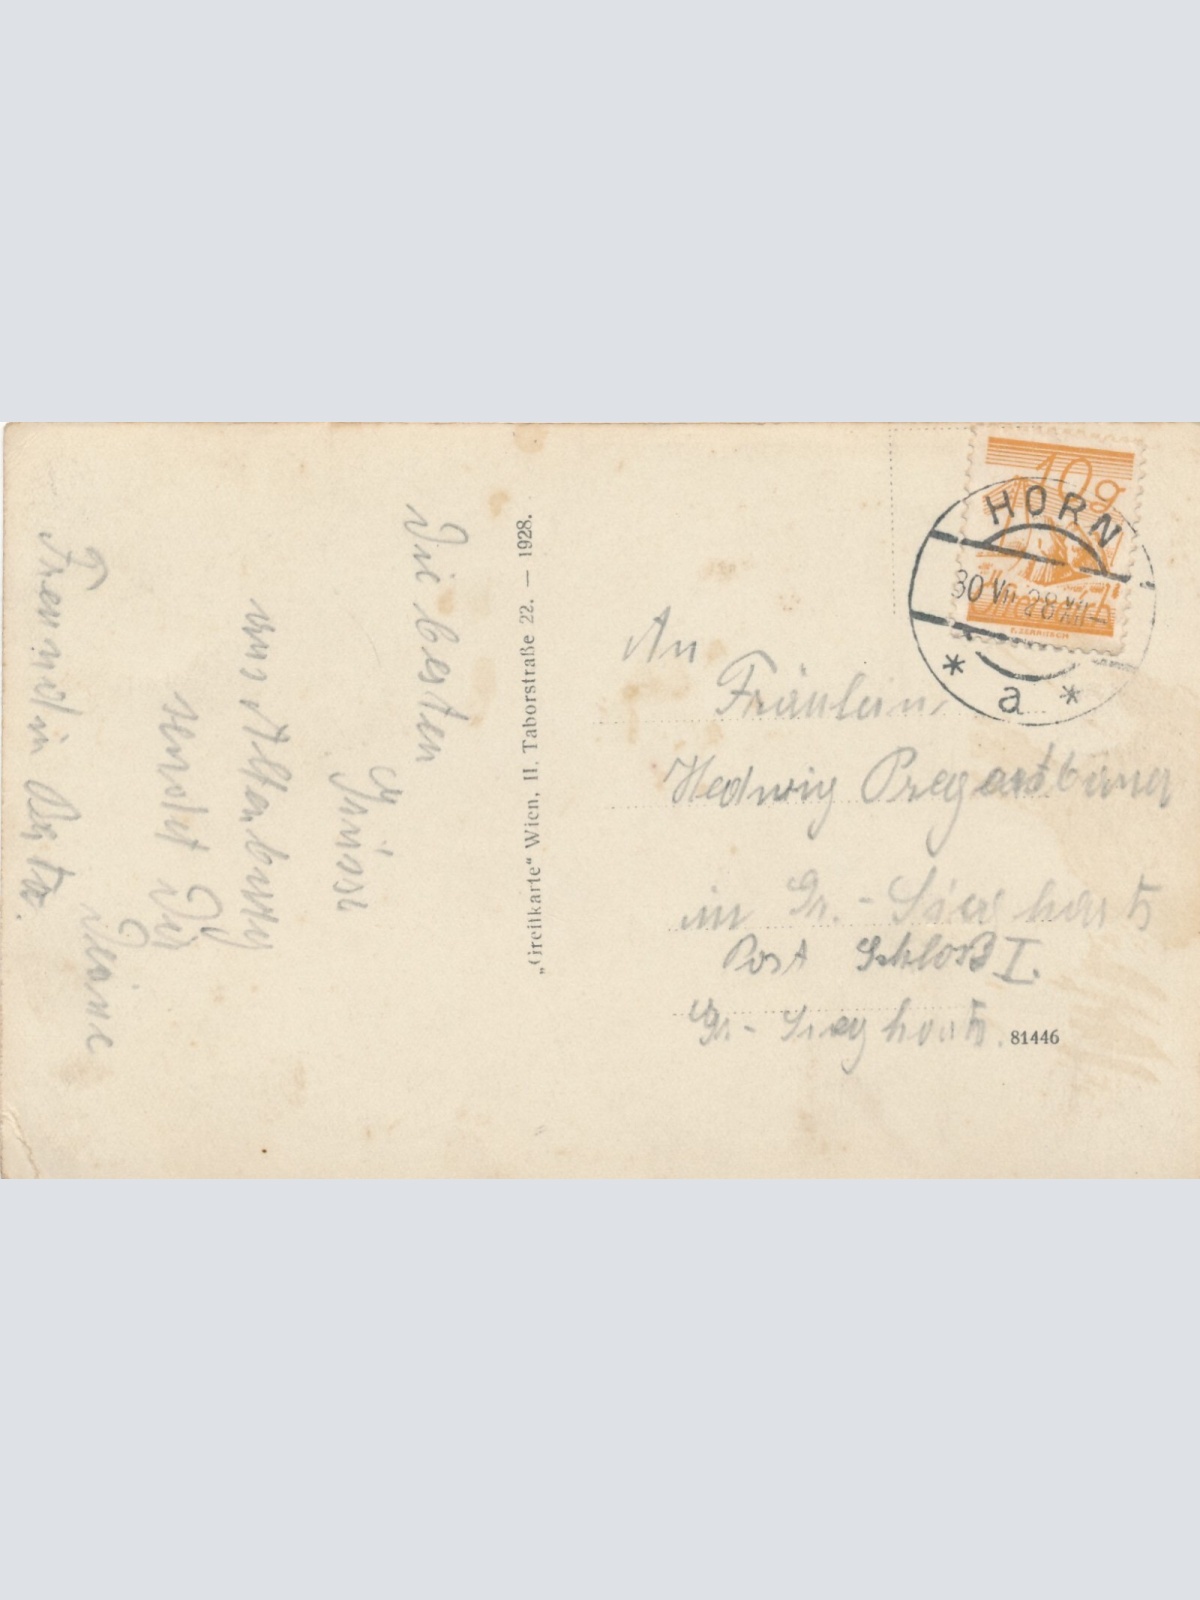 Die besten
Grüsse
aus Altenburg
sendet Dir
Deine
Freundin Berta.
„Greilkarte“ Wien, II. Taborstraße 22. — 1928.
10g
HORN
30 VII 28
a
An
Fräulein
Hedwig
in Gr.-Siegharts
Post Schloß I.
Gr.-Siegharts.
81446